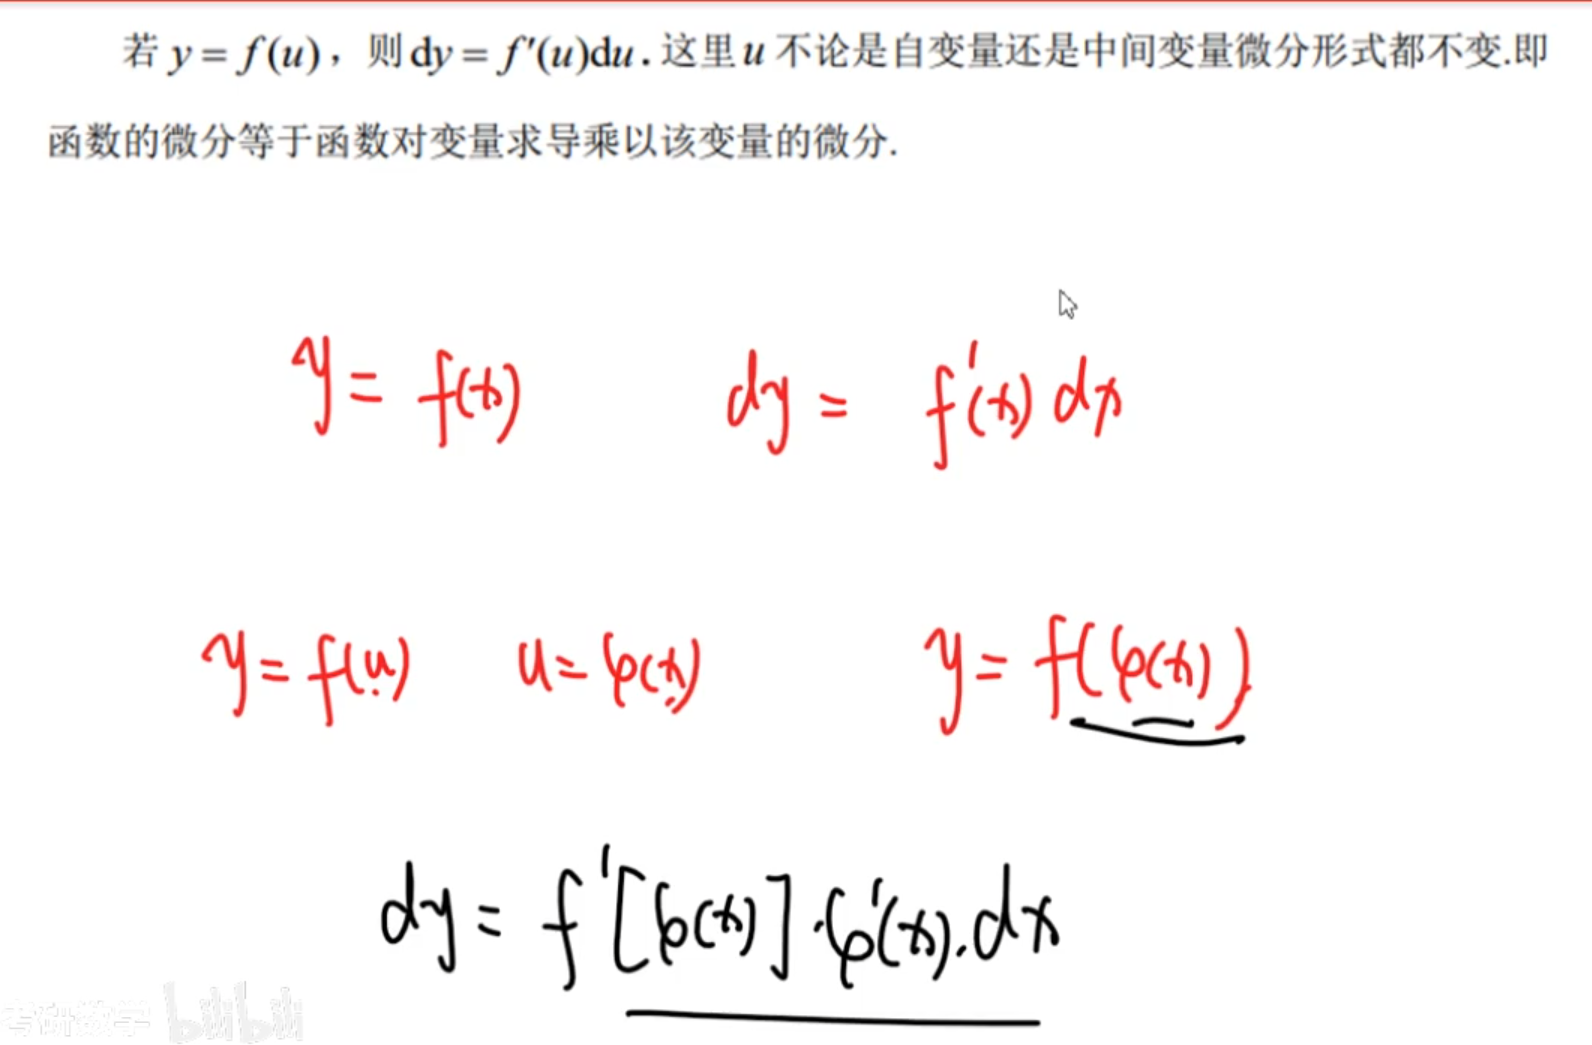 若 y = f(u)，则 dy = f′(u)du. 这里 u 不论是自变量还是中间变量微分形式都不变.即
函数的微分等于函数对变量求导乘以该变量的微分.
y = f(x) dy = f′(x) dx
y = f(u) u = φ(x) y = f(φ(x))
dy = f′[φ(x)]·φ′(x).dx
考研数学 bilibili